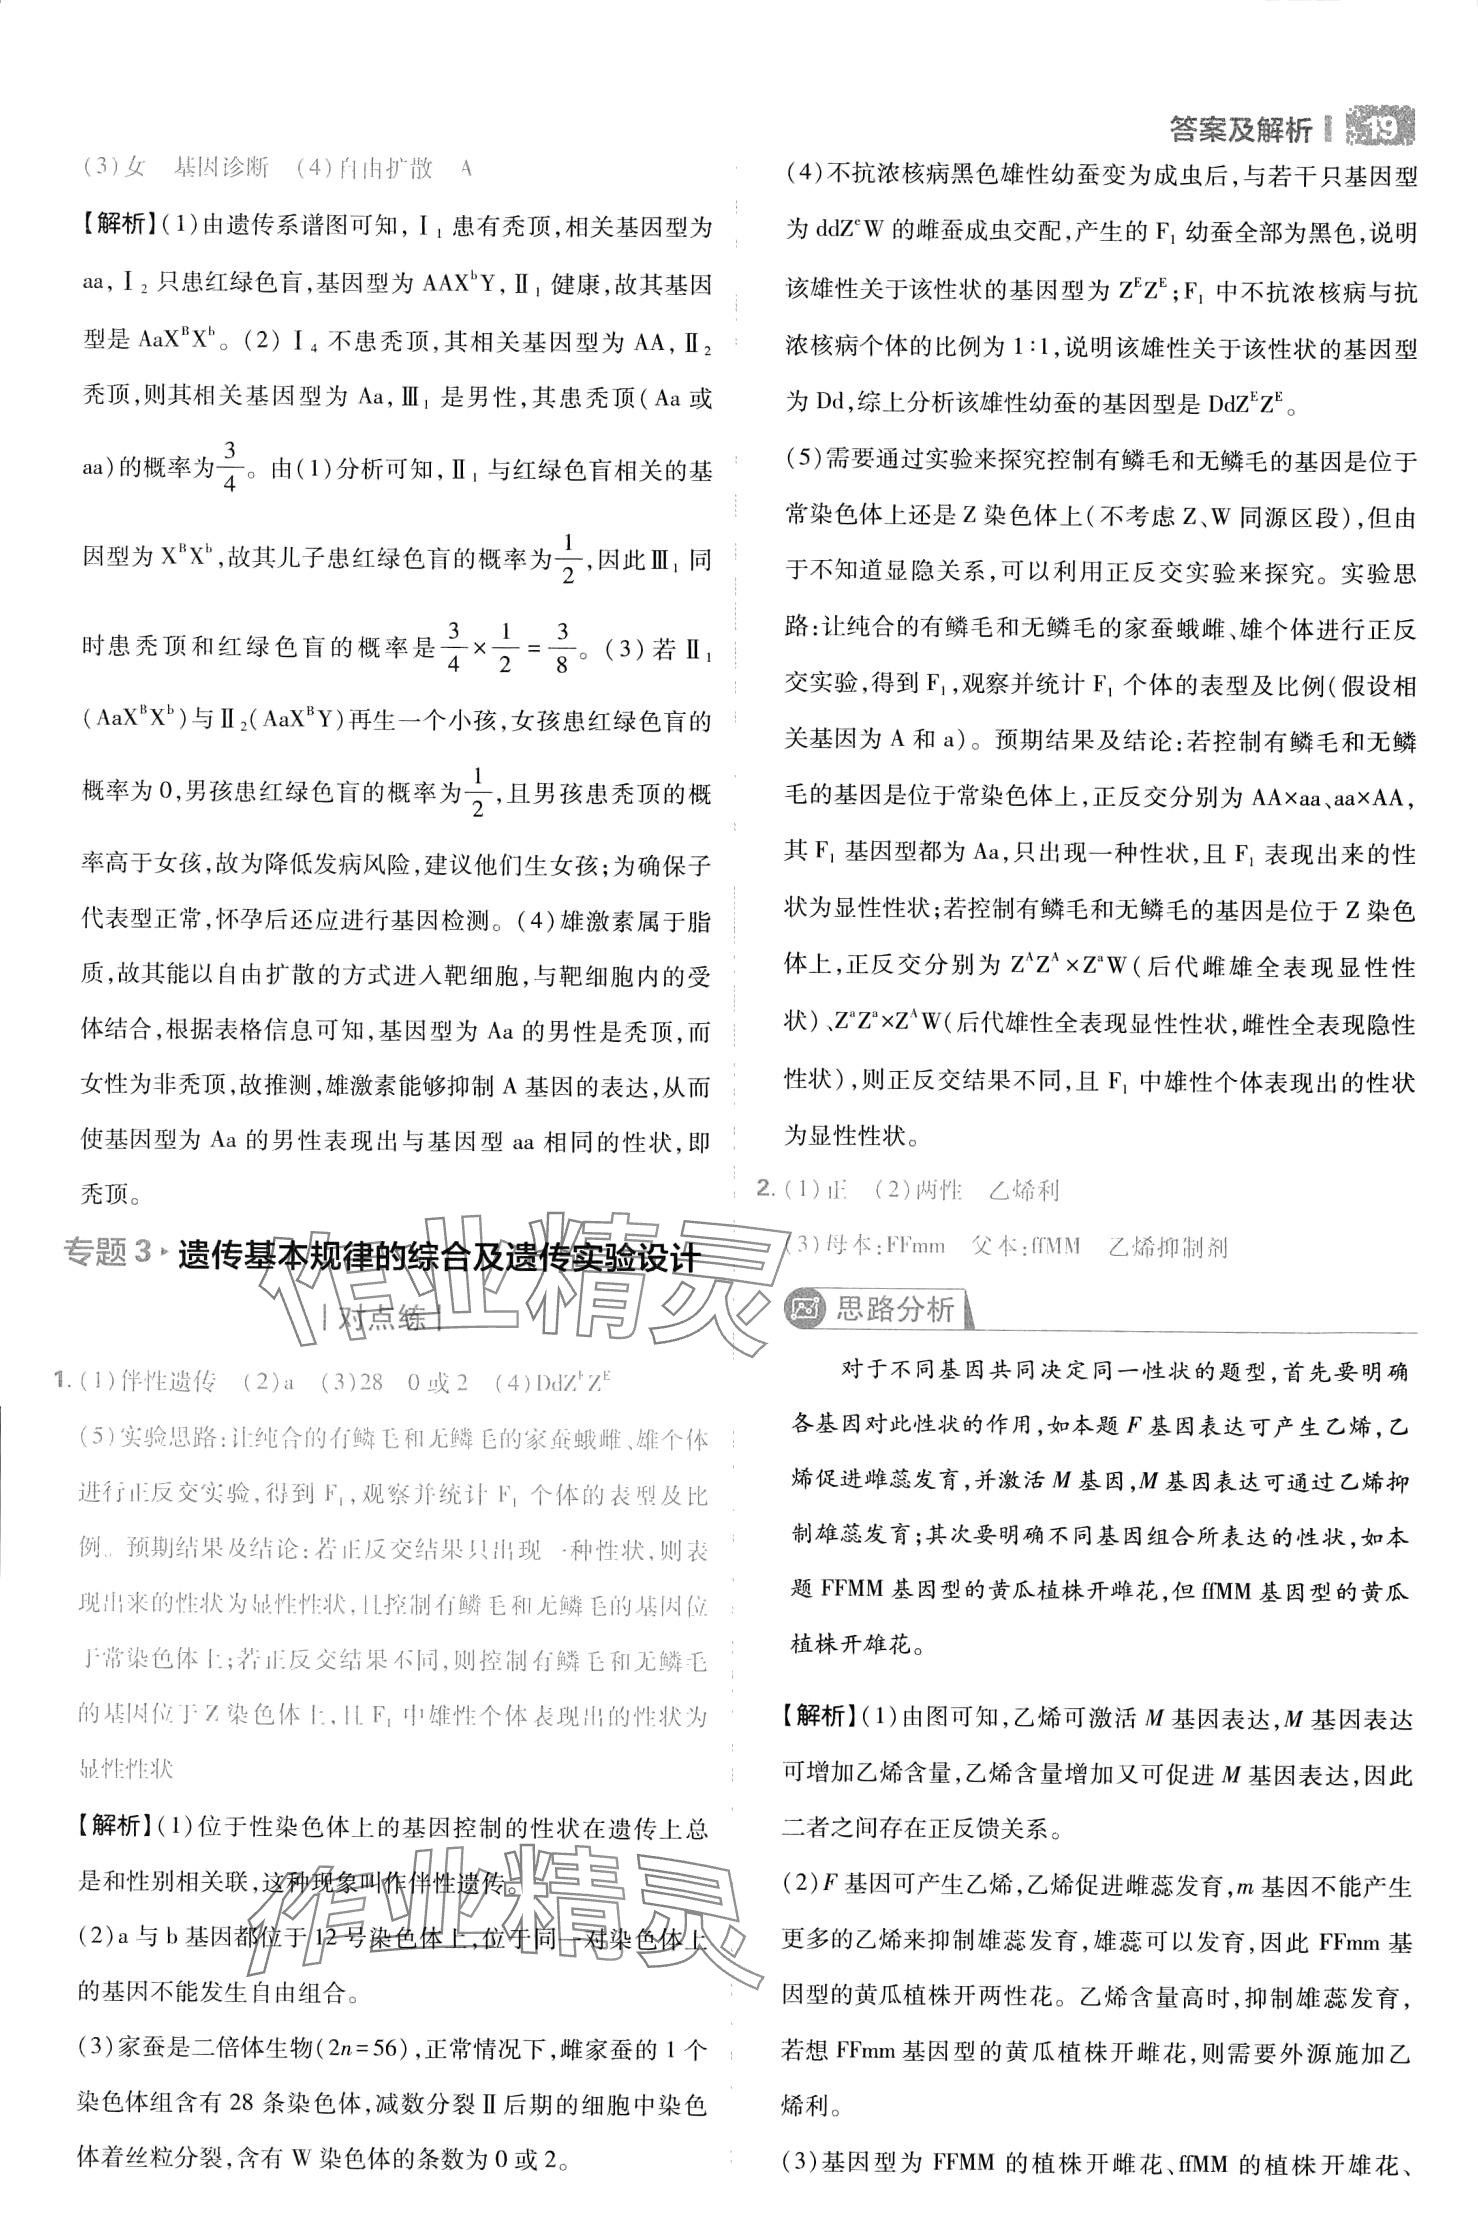 答案及解析 19
(3)女　基因诊断　(4)自由扩散　A
【解析】(1)由遗传系谱图可知,Ⅰ₁患有秃顶,相关基因型为
aa,Ⅰ₂只患红绿色盲,基因型为 AAXᵇY,Ⅱ₁健康,故其基因
型是 AaXᴮXᵇ。(2)Ⅰ₄不患秃顶,其相关基因型为 AA,Ⅱ₂
秃顶,则其相关基因型为 Aa,Ⅲ₁是男性,其患秃顶(Aa 或
aa)的概率为3/4。由(1)分析可知,Ⅱ₁与红绿色盲相关的基
因型为 XᴮXᵇ,故其儿子患红绿色盲的概率为1/2,因此Ⅲ₁同
时患秃顶和红绿色盲的概率是3/4×1/2=3/8。(3)若Ⅱ₁
(AaXᴮXᵇ)与Ⅱ₂(AaXᴮY)再生一个小孩,女孩患红绿色盲的
概率为0,男孩患红绿色盲的概率为1/2,且男孩患秃顶的概
率高于女孩,故为降低发病风险,建议他们生女孩;为确保子
代表型正常,怀孕后还应进行基因检测。(4)雄激素属于脂
质,故其能以自由扩散的方式进入靶细胞,与靶细胞内的受
体结合,根据表格信息可知,基因型为 Aa 的男性是秃顶,而
女性为非秃顶,故推测,雄激素能够抑制 A 基因的表达,从而
使基因型为 Aa 的男性表现出与基因型 aa 相同的性状,即
秃顶。
专题3 遗传基本规律的综合及遗传实验设计
对点练
1. (1)伴性遗传　(2)a　(3)28　0 或 2　(4)DdZᴱZᴱ
(5)实验思路:让纯合的有鳞毛和无鳞毛的家蚕蛾雌、雄个体
进行正反交实验,得到 F₁,观察并统计 F₁ 个体的表型及比
例。预期结果及结论:若正反交结果只出现一种性状,则表
现出来的性状为显性性状,且控制有鳞毛和无鳞毛的基因位
于常染色体上;若正反交结果不同,则控制有鳞毛和无鳞毛
的基因位于 Z 染色体上,且 F₁ 中雄性个体表现出的性状为
显性性状
【解析】(1)位于性染色体上的基因控制的性状在遗传上总
是和性别相关联,这种现象叫作伴性遗传。
(2)a 与 b 基因都位于 12 号染色体上,位于同一对染色体上
的基因不能发生自由组合。
(3)家蚕是二倍体生物(2n=56),正常情况下,雌家蚕的 1 个
染色体组含有 28 条染色体,减数分裂Ⅱ后期的细胞中染色
体着丝粒分裂,含有 W 染色体的条数为 0 或 2。
(4)不抗浓核病黑色雄性幼蚕变为成虫后,与若干只基因型
为 ddZᵉW 的雌蚕成虫交配,产生的 F₁ 幼蚕全部为黑色,说明
该雄性关于该性状的基因型为 ZᴱZᴱ;F₁ 中不抗浓核病与抗
浓核病个体的比例为 1∶1,说明该雄性关于该性状的基因型
为 Dd,综上分析该雄性幼蚕的基因型是 DdZᴱZᴱ。
(5)需要通过实验来探究控制有鳞毛和无鳞毛的基因是位于
常染色体上还是 Z 染色体上(不考虑 Z、W 同源区段),但由
于不知道显隐关系,可以利用正反交实验来探究。实验思
路:让纯合的有鳞毛和无鳞毛的家蚕蛾雌、雄个体进行正反
交实验,得到 F₁,观察并统计 F₁ 个体的表型及比例(假设相
关基因为 A 和 a)。预期结果及结论:若控制有鳞毛和无鳞
毛的基因是位于常染色体上,正反交分别为 AA×aa、aa×AA,
其 F₁ 基因型都为 Aa,只出现一种性状,且 F₁ 表现出来的性
状为显性性状;若控制有鳞毛和无鳞毛的基因是位于 Z 染色
体上,正反交分别为 ZᴬZᴬ×ZᵃW(后代雌雄全表现显性性
状)、ZᵃZᵃ×ZᴬW(后代雄性全表现显性性状,雌性全表现隐性
性状),则正反交结果不同,且 F₁ 中雄性个体表现出的性状
为显性性状。
2. (1)正　(2)两性　乙烯利
(3)母本:FFmm　父本:ffMM　乙烯抑制剂
思路分析
对于不同基因共同决定同一性状的题型,首先要明确
各基因对此性状的作用,如本题 F 基因表达可产生乙烯,乙
烯促进雌蕊发育,并激活 M 基因,M 基因表达可通过乙烯抑
制雄蕊发育;其次要明确不同基因组合所表达的性状,如本
题 FFMM 基因型的黄瓜植株开雌花,但 ffMM 基因型的黄瓜
植株开雄花。
【解析】(1)由图可知,乙烯可激活 M 基因表达,M 基因表达
可增加乙烯含量,乙烯含量增加又可促进 M 基因表达,因此
二者之间存在正反馈关系。
(2)F 基因可产生乙烯,乙烯促进雌蕊发育,m 基因不能产生
更多的乙烯来抑制雄蕊发育,雄蕊可以发育,因此 FFmm 基
因型的黄瓜植株开两性花。乙烯含量高时,抑制雄蕊发育,
若想 FFmm 基因型的黄瓜植株开雌花,则需要外源施加乙
烯利。
(3)基因型为 FFMM 的植株开雌花、ffMM 的植株开雄花、
作业精灵
作业精灵